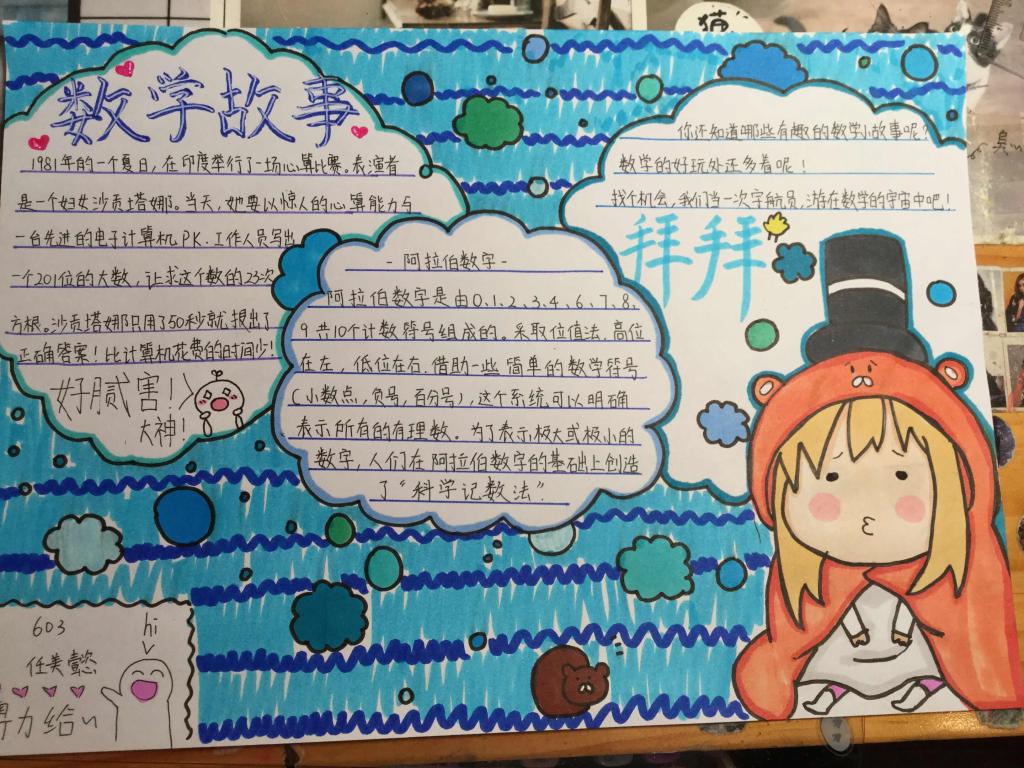 数学故事
1981年的一个夏日，在印度举行了一场心算比赛。表演者
是一个妇女沙贡塔娜。当天，她要以惊人的心算能力与
一台先进的电子计算机PK.工作人员写出
一个201位的大数，让求这个数的23次
方根。沙贡塔娜只用了50秒就报出了
正确答案！比计算机花费的时间少！
好腻害！
大神！
-阿拉伯数字-
阿拉伯数字是由0、1、2、3、4、6、7、8、
9共10个计数符号组成的。采取位值法，高位
在左，低位在右，借助一些简单的数学符号
（小数点，负号，百分号），这个系统可以明确
表示所有的有理数。为了表示极大或极小的
数字，人们在阿拉伯数字的基础上创造
了“科学记数法”.
你还知道哪些有趣的数学小故事呢？
数学的好玩处还多着呢！
找个机会，我们当一次宇航员，游在数学的宇宙中吧！
拜拜
603
hi
任美懿
力给
猫